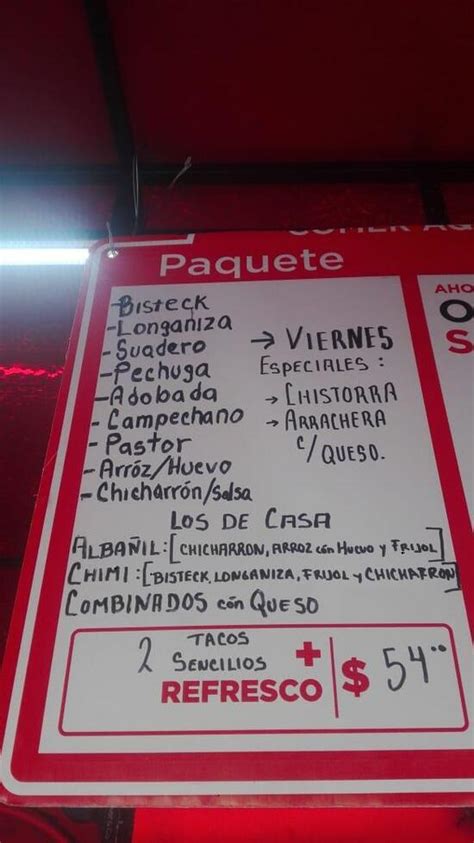 COMER AQ
Paquete
-Bisteck
-Longaniza
-Suadero
-Pechuga
-Adobada
-Campechano
-Pastor
-Arróz/Huevo
-Chicharrón/Salsa
→ VIERNES
ESPECIALES :
→ CHISTORRA
→ ARRACHERA
c/ QUESO.
LOS DE CASA
ALBAÑIL:[CHICHARRON, ARROZ cón HUEVO y FRIJOL]
CHIMI:[BISTECK, LONGANIZA, FRIJOL y CHICHARRON]
COMBINADOS cón QUESO
2 TACOS
SENCILIOS +
REFRESCO
$ 54°°
AHO
O
S